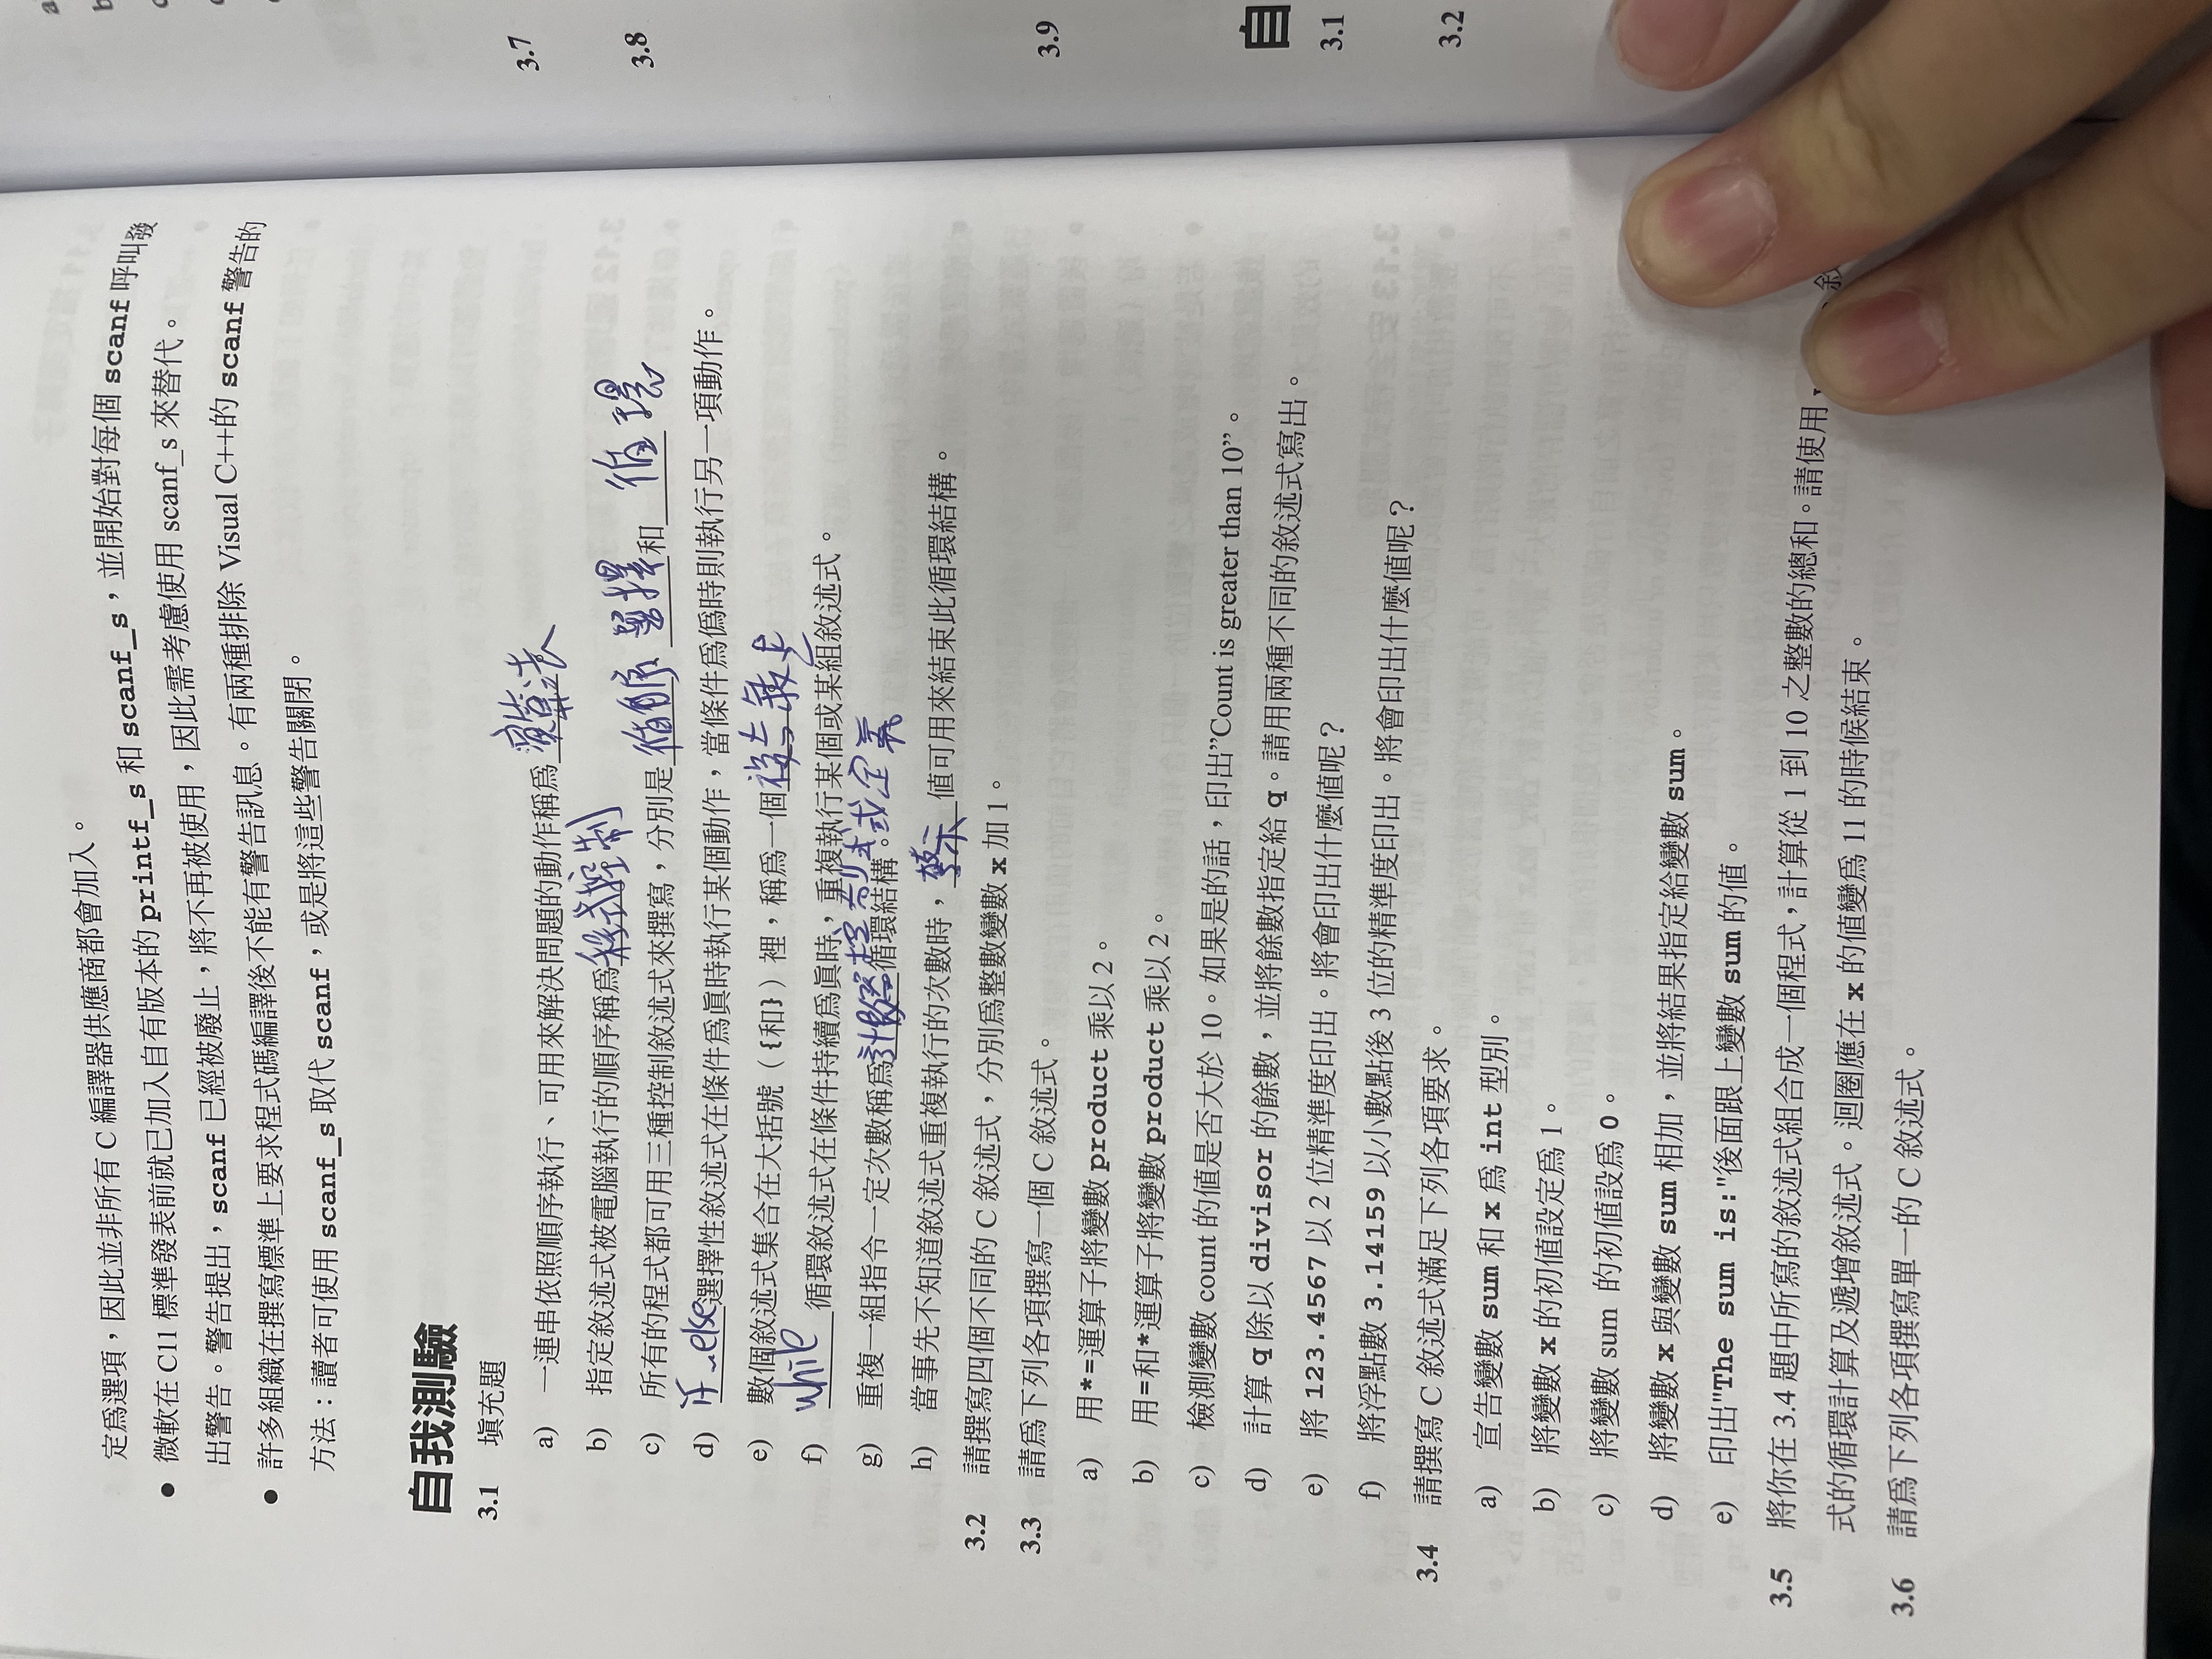 定為選項，因此並非所有 C 編譯器供應商都會加入。
● 微軟在 C11 標準發表前就已加入自有版本的 printf_s 和 scanf_s，並開始對每個 scanf 呼叫發
出警告。警告提出，scanf 已經被廢止，將不再被使用，因此需考慮使用 scanf_s 來替代。
● 許多組織在撰寫標準上要求程式碼編譯後不能有警告訊息。有兩種排除 Visual C++的 scanf 警告的
方法：讀者可使用 scanf_s 取代 scanf，或是將這些警告關閉。
自我測驗
3.1 填充題
a) 一連串依照順序執行、可用來解決問題的動作稱為演算法
b) 指定敘述式被電腦執行的順序稱為程式控制
c) 所有的程式都可用三種控制敘述式來撰寫，分別是循序 選擇和 循環
d) if…else選擇性敘述式在條件為真時執行某個動作，當條件為偽時則執行另一項動作。
e) 數個敘述式集合在大括號（{和}）裡，稱為一個複合敘述
f) while循環敘述式在條件持續為真時，重複執行某個或某組敘述式。
g) 重複一組指令一定次數稱為計數器控制式或定義循環結構。
h) 當事先不知道敘述式重複執行的次數時，警示 值可用來結束此循環結構。
3.2 請撰寫四個不同的 C 敘述式，分別為整數變數 x 加 1。
3.3 請為下列各項撰寫一個 C 敘述式。
a) 用*=運算子將變數 product 乘以 2。
b) 用=和*運算子將變數 product 乘以 2。
c) 檢測變數 count 的值是否大於 10。如果是的話，印出”Count is greater than 10”。
d) 計算 q 除以 divisor 的餘數，並將餘數指定給 q。請用兩種不同的敘述式寫出。
e) 將 123.4567 以 2 位精準度印出。將會印出什麼值呢？
f) 將浮點數 3.14159 以小數點後 3 位的精準度印出。將會印出什麼值呢？
3.4 請撰寫 C 敘述式滿足下列各項要求。
a) 宣告變數 sum 和 x 為 int 型別。
b) 將變數 x 的初值設定為 1。
c) 將變數 sum 的初值設為 0。
d) 將變數 x 與變數 sum 相加，並將結果指定給變數 sum。
e) 印出"The sum is:"後面跟上變數 sum 的值。
3.5 將你在 3.4 題中所寫的敘述式組合成一個程式，計算從 1 到 10 之整數的總和。請使用 敘
式的循環計算及遞增敘述式。迴圈應在 x 的值變為 11 的時候結束。
3.6 請為下列各項撰寫單一的 C 敘述式。
3.7
3.8
3.9
自
3.1
3.2